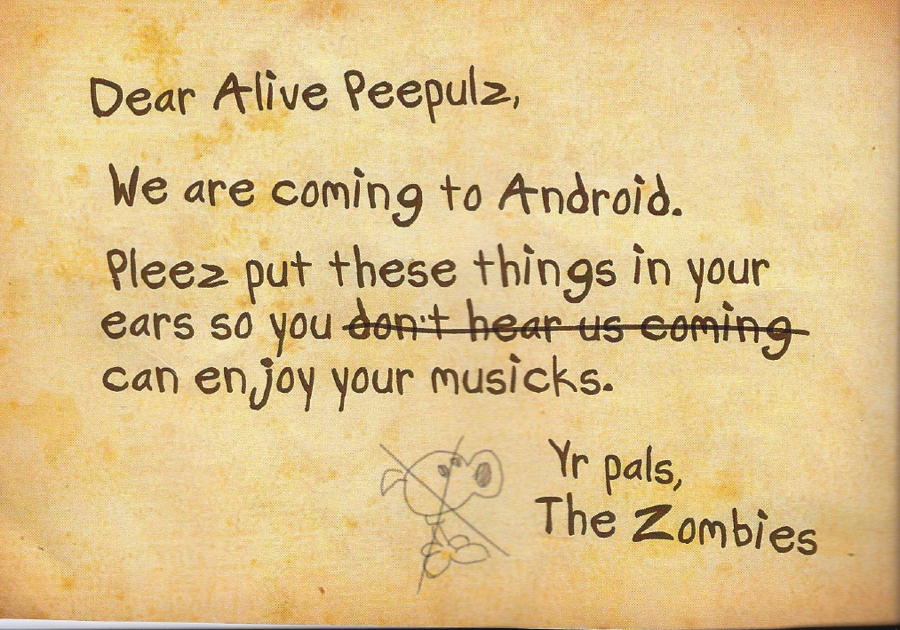 Dear Alive Peepulz,
We are coming to Android.
Pleez put these things in your
ears so you don't hear us coming
can enjoy your musicks.
Yr pals,
The Zombies